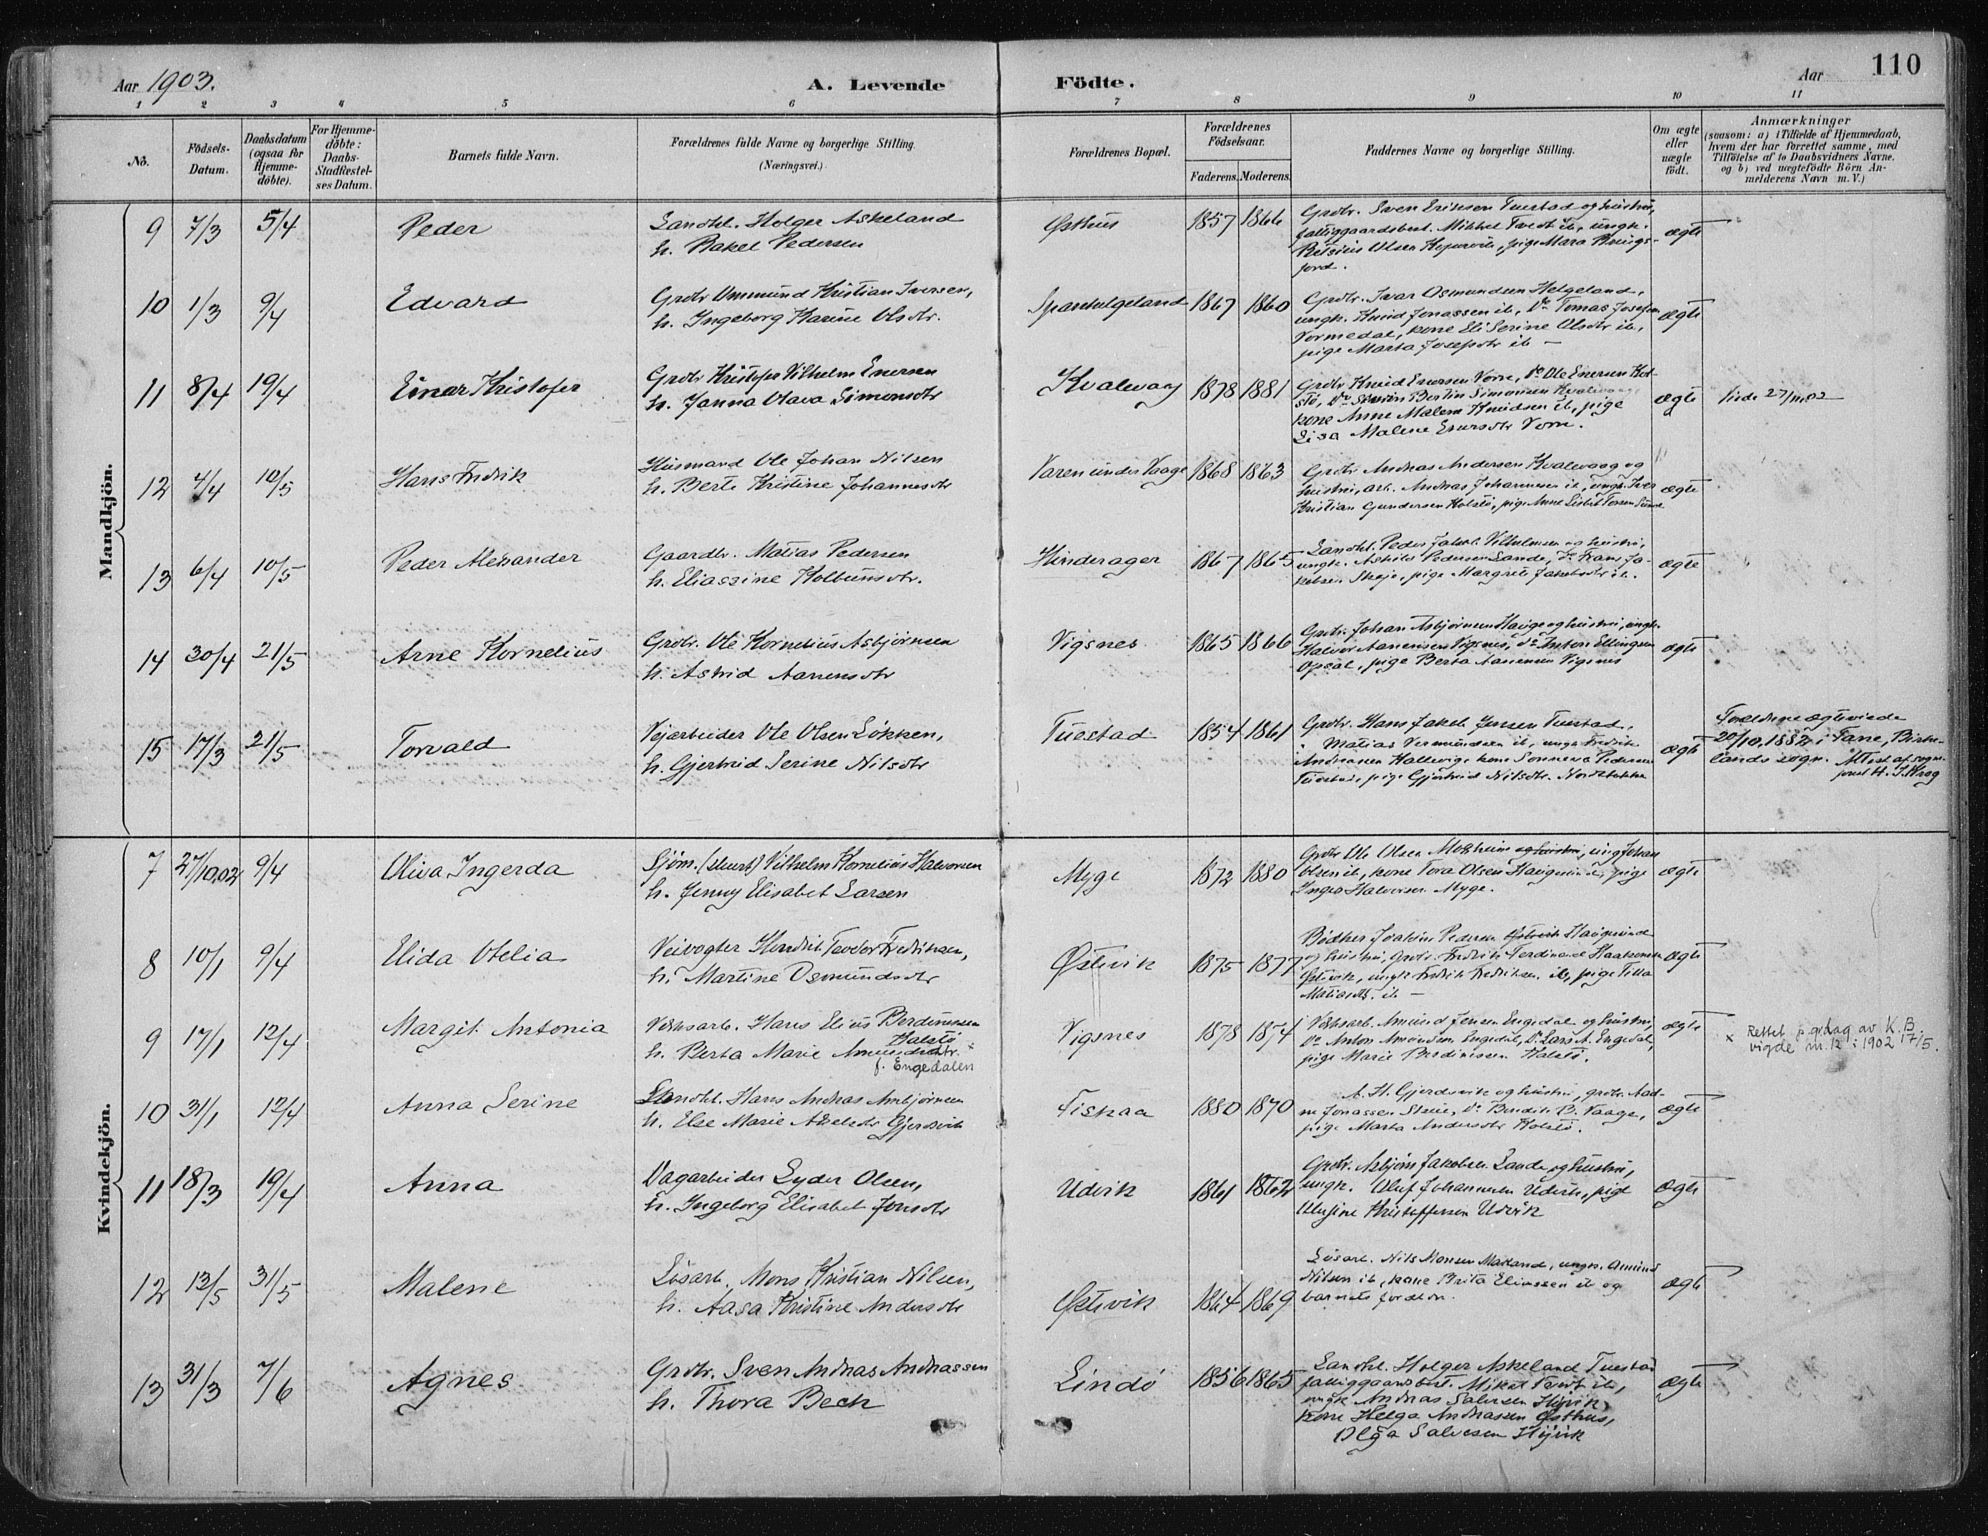 Aar 1903.
A. Levende Födte.
Aar
110
1 2 3 4 5 6 7 8 9 10 11
No.
Födsels-Datum.
Daabsdatum (ogsaa for Hjemme-döbte).
For Hjemme-döbte: Daabs-Stadfæstel-ses Datum.
Barnets fulde Navn.
Forældrenes fulde Navne og borgerlige Stilling. (Næringsvei.)
Forældrenes Bopæl.
Forældrenes Födselsaar.
Faderens. Moderens.
Faddernes Navne og borgerlige Stilling.
Om ægte eller uægte født.
Anmærkninger
(saasom: a) i Tilfælde af Hjemmedaab, hvem der har forrettet samme, med Tilföielse af to Daabsvidners Navne. og b) ved uægtefödte Börn An-melderens Navn m. V.)
Mandkjön.
9 7/3 5/4 Peder
Landhl. Holger Askeland
h. Rakel Pedersen
Østhus 1857 1866
Grdbr. Sven Eriksen Tuestad og hustru,
Mikkel Tveit ib, ungk.
Olsen, pige Mara
ægte
10 1/3 9/4 Edvard
Grdbr Ommund Kristian Iversen,
h. Ingeborg Karine Olsdtr.
Spanhelgeland 1867 1860
Grdbr. Ivar Osmundsen Helgeland,
ungk. Knud Jonassen ib, Do Tomas Josefsen
Vormedal, kone Eli Serine Olsdtr ib,
pige Marta Josefsdtr ib —
ægte
11 8/4 19/4 Einar Kristofer
Grdbr Kristofer Vilhelm Enersen
h. Janna Olava Simonsdtr
Kvalevaag 1878 1881
Grdbr Knud Enersen Vorre, Do Ole Enersen Kol-
stø, Do Bertin Simonsen
kone Anne Malene Knudsen ib, pige
Lisa Malene Enersdtr Vorre.
ægte
27/11.02
12 4/4 10/5 Hans Fredrik
Husmand Ole Johan Nilsen
h. Berte Kristine Johannesdtr
Varen under Vaage 1868 1863
Grdbr Andreas Andersen Kvalevaag og
hustru, arb. Andreas Johannesen ib, ungk. Iver
Kristian Gundersen Kolstø, pige Anne Lisbet
ægte
13 6/4 10/5 Peder Alexander
Gaardbr. Matias Pedersen
h. Eliassine Kolbensdtr.
Hinderager 1867 1865
Landhl. Peder Jakob Vilhelmsen og hustru,
ungk. Pedersen Lande, Do Frans Ja-
kobsen Skeje, pige Margrete Jakobsdtr ib.
ægte
14 30/4 21/5 Arne Kornelius
Grdbr. Ole Kornelius Asbjørnsen
h. Astrid Aanensdtr
Vigsnes 1865 1866
Grdbr. Johan Asbjørnsen Hauge og hustru, ungk.
Halvor Aanensen Vigsnes, Do Anton Ellingsen
Opsal, pige Berta Aanensen Vigsnes
ægte
15 17/3 21/5 Torvald
Vejarbeider Ole Olsen Løkken,
h. Gjertrud Serine Nilsdtr
Tuestad 1854 1861
Grdbr. Hans Jakob Jensen Tuestad,
Matias Vermundsen ib, ungk Fredrik
Andreassen Hallevige kone Sonneva Pedersen
Tuestad, pige Gjertrud Nilsdtr.
ægte
Forældrene ægteviede
20/10.1882 i Fane, Birke-
lands sogn. Attest af sogn-
prest H. J. Krog
Kvindekjön.
7 27/10.02 9/4 Oliva Ingerda
Sjøm. Vilhelm Kornelius Halvorsen
h. Jenny Elisabet Larsen
Myge 1872 1880
Grdbr Ole Olsen, ung Johan
Olsen ib, kone Tora Olsen Haugesund, pige
Inger Halvorsen Myge.
ægte
8 10/1 9/4 Elida Otelia
Veivogter Hendrik Teodor Fredriksen,
h. Martine Osmundsdtr
Østevik 1875 1877
Bødker Joakim Pedersen Haugesund
og hustru, Grdbr. Fredrik Ferdinand Haakonsen
Østevik, ungk Fredrik Fredriksen ib, pige Tilla
Matiasdtr. ib —
ægte
9 17/1 12/4 Margit Antonia
Verksarb. Hans Elius Berdinessen
Kolstø ×
h. Berta Marie Amundsdtr.
f. Engedalen
Vigsnes 1878 1874
Verksarb. Amund Jensen Engedal og hustru,
Do Anton Amundsen Engedal, Do Lars A. Engedal,
pige Marie Berdinessen Kolstø.
ægte
× Rettet p. grdlag av K.B.
vigde nr. 12 i 1902 17/5.
10 31/1 12/4 Anna Serine
Landhl. Hans Andreas Ambjørnsen
h. Else Marie Akselsdtr Gjerdsvik
Fiskaa 1880 1870
A. H. Gjerdsvik og hustru, grdbr. Aad-
ne Jonassen Skeie, Do Bendik B. Vaage,
pige Marta Andersdtr Kolstø.
ægte
11 18/3 19/4 Anna
Dagarbeider Lyder Olsen,
h. Ingeborg Elisabet Jonsdtr
Udvik 1861 1862
Grdbr. Asbjørn Jakobsen Lande og hustru,
ungk. Oluf Johannesen Udvik, pige
Kristoffersen Udvik
ægte
12 13/5 31/5 Malene
Løsarb. Mons Kristian Nilsen,
h. Aasa Kristine Andersdtr
Østevik 1864 1869
Løsarb. Nils Monsen Madland, ungk. Amund
Nilsen ib, kone Brita Eliassen ib og
barnets forældre.
ægte
13 31/3 7/6 Agnes
Grdbr. Sven Andreas Andreassen
h. Thora Bech
Lindø 1856 1865
Landhl. Holger Askeland Tuestad
Mikal Tveit ib,
ungk Andreas Salvesen Høivik,
kone Helga Andreassen Østhus,
Olga Salvesen Høivik
ægte